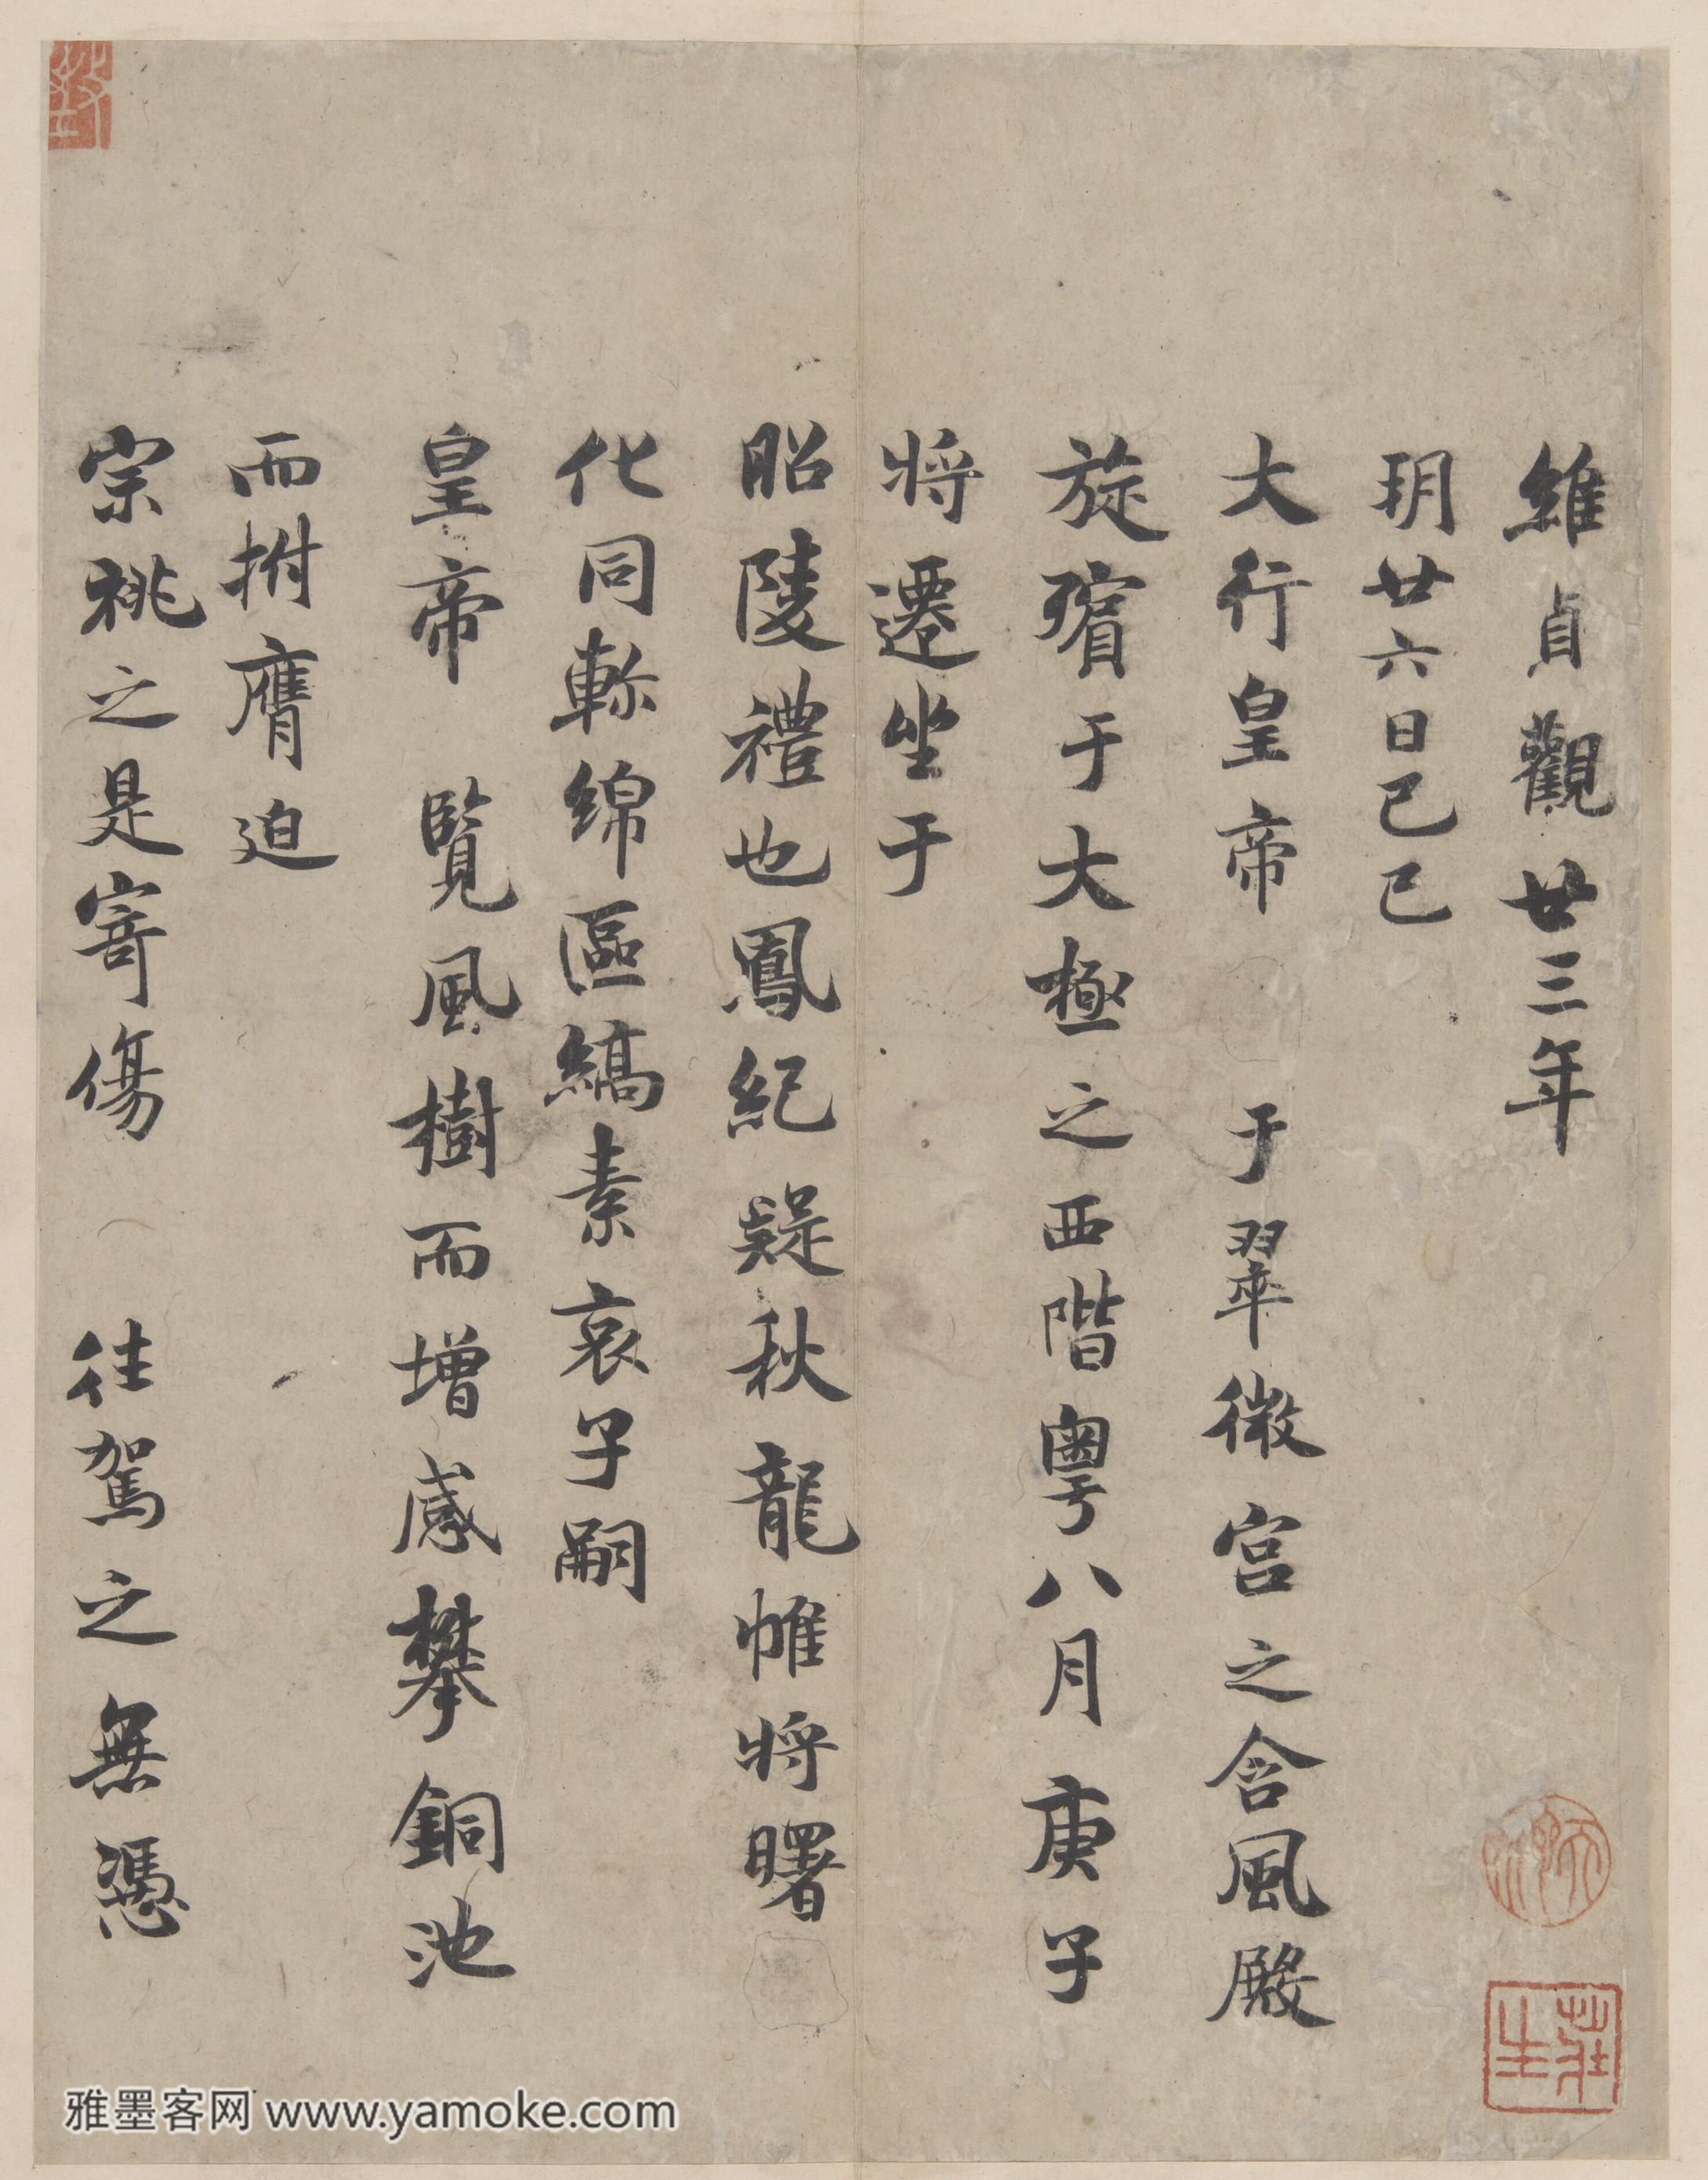 維貞觀廿三年
玥廿六日己巳
大行皇帝 于翠微宮之含風殿
旋殯于大極之西階粵八月庚子
将遷坐于
昭陵禮也鳳紀疑秋龍帷将曙
化同軫綿區縞素哀子嗣
皇帝 覽風樹而增感攀銅池
而拊膺迫
宗祧之是寄傷 往駕之無憑
雅墨客网 www.yamoke.com